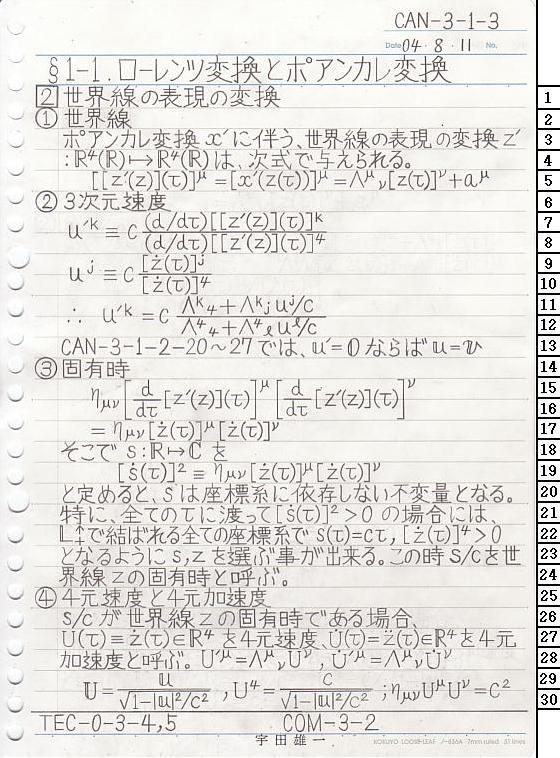 CAN-3-1-3
Date 04・8・11 No.
§1-1.ローレンツ変換とポアンカレ変換
2 世界線の表現の変換
① 世界線
ポアンカレ変換x'に伴う、世界線の表現の変換z'
:R⁴(R)↦R⁴(R)は、次式で与えられる。
[[z'(z)](τ)]^μ=[x'(z(τ))]^μ=Λ^μ_ν[z(τ)]^ν+a^μ
② 3次元速度
u'^k ≡ c (d/dτ)[[z'(z)](τ)]^k / (d/dτ)[[z'(z)](τ)]^4
u^j ≡ c [ż(τ)]^j / [ż(τ)]^4
∴ u'^k = c (Λ^k_4+Λ^k_j u^j/c) / (Λ^4_4+Λ^4_ℓ u^ℓ/c)
CAN-3-1-2-20~27では、u'=0ならばu=v
③ 固有時
η_μν[d/dτ[z'(z)](τ)]^μ[d/dτ[z'(z)](τ)]^ν
=η_μν[ż(τ)]^μ[ż(τ)]^ν
そこで s:R↦C を
[ṡ(τ)]²≡η_μν[ż(τ)]^μ[ż(τ)]^ν
と定めると、sは座標系に依存しない不変量となる。
特に、全てのτに渡って[ṡ(τ)]²>0の場合には、
L↑で結ばれる全ての座標系でs(τ)=cτ,[ż(τ)]^4>0
となるようにs,zを選ぶ事が出来る。この時s/cを世
界線zの固有時と呼ぶ。
④ 4元速度と4元加速度
s/cが世界線zの固有時である場合、
U(τ)≡ż(τ)∈R⁴を4元速度、U̇(τ)=z̈(τ)∈R⁴を4元
加速度と呼ぶ。U'^μ=Λ^μ_νU^ν, U̇'^μ=Λ^μ_νU̇^ν
U=u/√(1-|u|²/c²), U^4=c/√(1-|u|²/c²) ;η_μνU^μU^ν=c²
TEC-0-3-4,5 COM-3-2
宇田雄一
KOKUYO LOOSE-LEAF ノ-836A 7mm ruled 31 lines
1
2
3
4
5
6
7
8
9
10
11
12
13
14
15
16
17
18
19
20
21
22
23
24
25
26
27
28
29
30